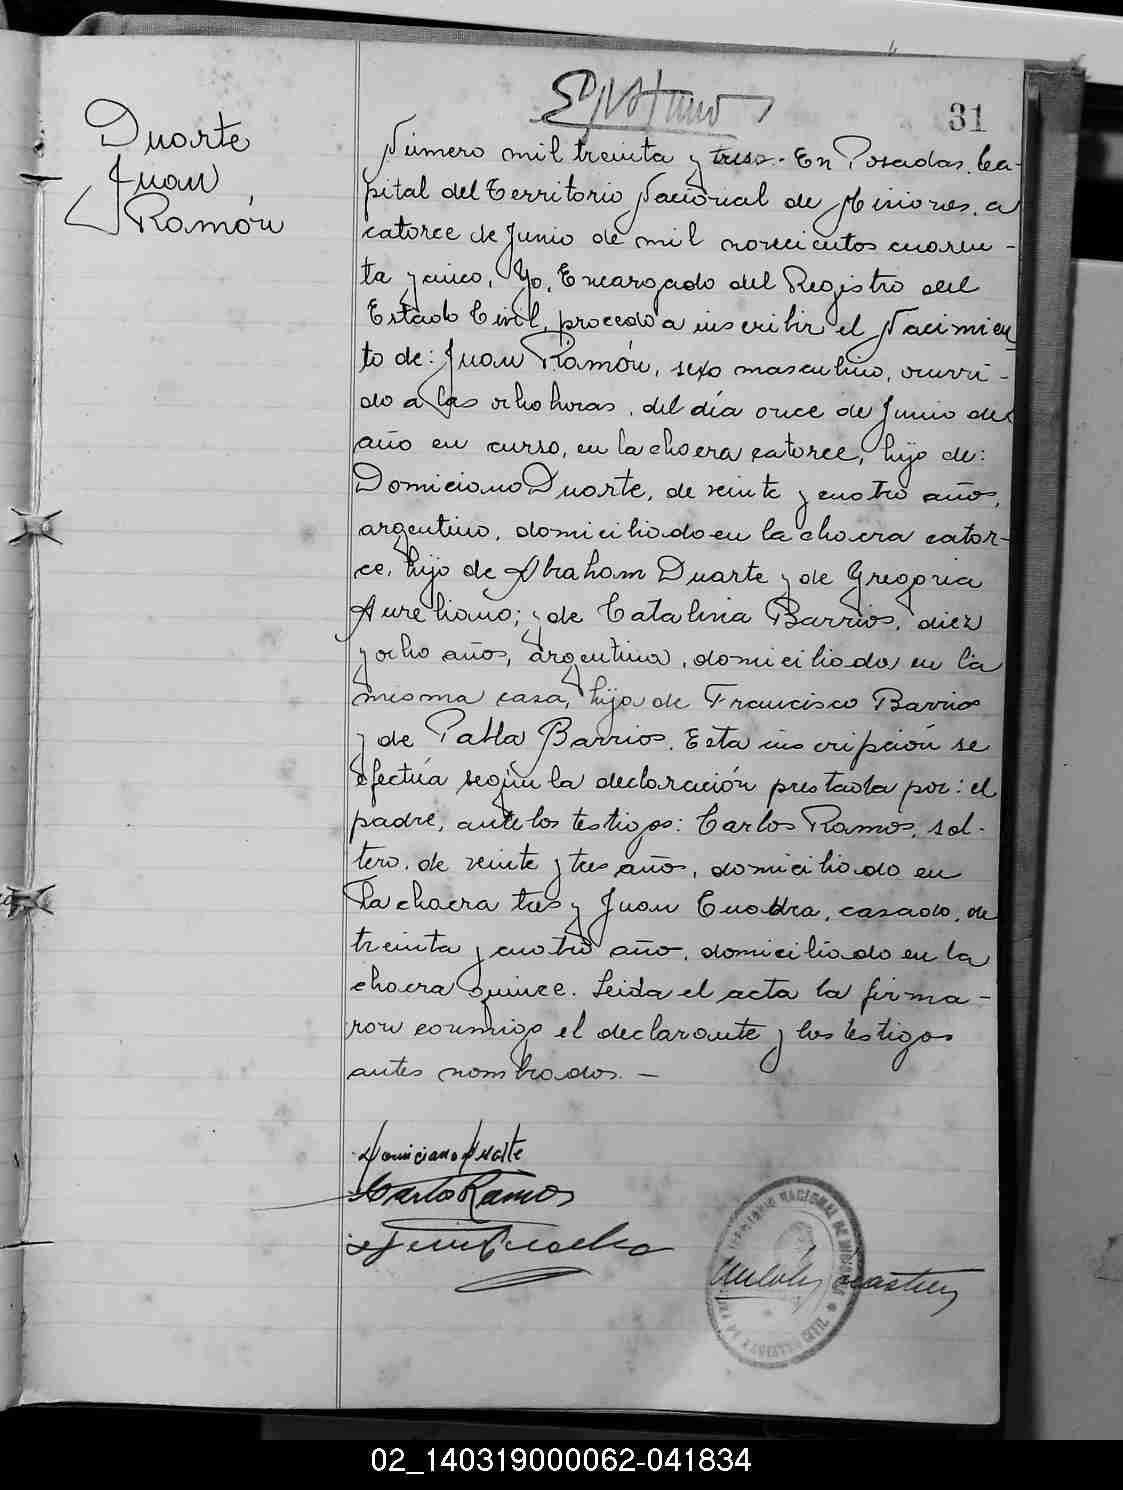 31
Duarte
Juan
Ramón
Número mil treinta y tres.- En Posadas, Ca-
pital del Territorio Nacional de Misiones, a
catorce de Junio de mil novecientos cuaren-
ta y cinco, Yo, Encargado del Registro del
Estado Civil, procedo a inscribir el Nacimien
to de: Juan Ramón, sexo masculino, ocurri-
do a las ocho horas, del día once de Junio del
año en curso, en la chacra catorce, hijo de:
Domiciano Duarte, de veinte y cuatro años,
argentino, domiciliado en la chacra cator-
ce, hijo de Abraham Duarte y de Gregoria
Aureliano; y de Catalina Barrios, diez
y ocho años, argentina, domiciliada en la
misma casa, hija de Francisco Barrios
y de Pabla Barrios. Esta inscripción se
efectúa según la declaración prestada por: el
padre, ante los testigos: Carlos Ramos, sol-
tero, de veinte y tres años, domiciliado en
la chacra tres y Juan Cuadra, casado, de
treinta y cuatro año, domiciliado en la
chacra quince. Leida el acta la firma-
ron conmigo el declarante y los testigos
antes nombrados. —
Domiciano Duarte
Carlos Ramos
TERRITORIO NACIONAL DE MISIONES
02_140319000062-041834